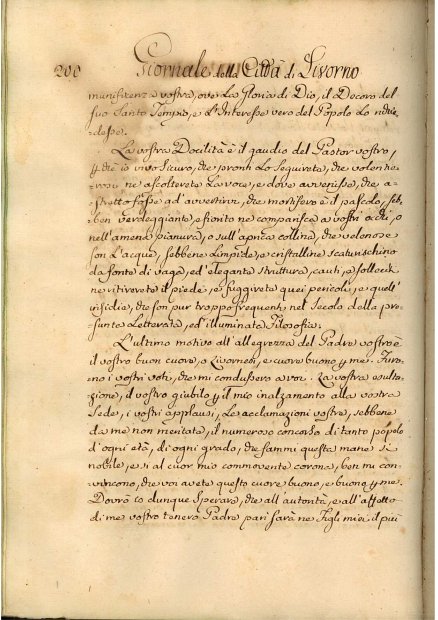 200 Giornale della Città di Livorno
munificenza vostra, ove la Gloria di Dio, il Decoro del
suo Santo Tempio, e l'Interesse vero del Popolo lo richie-
desse.
La vostra Docilità è il gaudio del Pastor vostro,
che io vivo sicuro, che pronti lo seguirete, che volentie-
rosi ne ascolterete la voce, e dove avvenisse, che a-
stretto fosse ad avvertirvi, che mortifero è il pascolo, seb-
ben verdeggiante, e fiorito ne comparisca a vostri occhi, o
nell'amena pianura, o sull'aprica collina, che velenose
son l'acque, sebbene limpide, e cristalline scaturischino
da fonte di vaga, ed elegante struttura, cauti, e solleciti
ne ritirerete il piede, e sfuggirete quei pericoli, e quell'
insidie, che son pur troppo frequenti nel secolo della pre-
sunta Letterata, ed illuminata Filosofia.
L'ultimo motivo all'allegrezza del Padre vostro è
il vostro buon cuore, o Livornesi, e cuore buono
no i vostri voti, che mi condussero a voi. La vostra esulta-
zione, il vostro giubilo, il mio inalzamento alla vostra
Sede, i vostri applausi, le acclamazioni vostre, sebbene
da me non meritate, il numeroso concorso di tanto popolo
d'ogni età, di ogni grado, che fammi questa mane sì
nobile, e sì al cuor mio commovente corona, ben mi con-
vincono, che voi avete questo cuore buono, e buono
Dovrò io dunque sperare, che all'autorità, e all'affetto
di me vostro tenero Padre pari sarà ne Figli miei il più